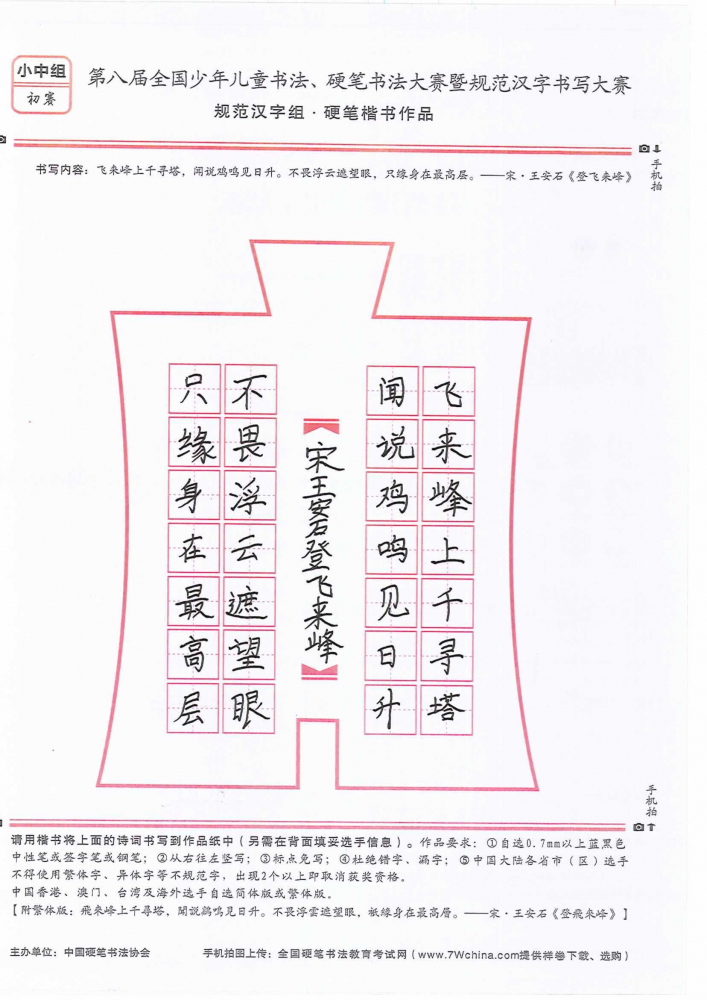 小中组
初赛
第八届全国少年儿童书法、硬笔书法大赛暨规范汉字书写大赛
规范汉字组·硬笔楷书作品
手机拍
书写内容：飞来峰上千寻塔，闻说鸡鸣见日升。不畏浮云遮望眼，只缘身在最高层。——宋·王安石《登飞来峰》
飞来峰上千寻塔
闻说鸡鸣见日升
宋王安石登飞来峰
不畏浮云遮望眼
只缘身在最高层
手机拍
请用楷书将上面的诗词书写到作品纸中（另需在背面填妥选手信息）。作品要求：①自选0.7mm以上蓝黑色
中性笔或签字笔或钢笔；②从右往左竖写；③标点免写；④杜绝错字、漏字；⑤中国大陆各省市（区）选手
不得使用繁体字、异体字等不规范字，出现2个以上即取消获奖资格。
中国香港、澳门、台湾及海外选手自选简体版或繁体版。
【附繁体版：飛來峰上千尋塔，聞說鷄鳴見日升。不畏浮雲遮望眼，衹緣身在最高層。——宋·王安石《登飛來峰》】
主办单位：中国硬笔书法协会
手机拍图上传：全国硬笔书法教育考试网（www.7Wchina.com提供样卷下载、选购）